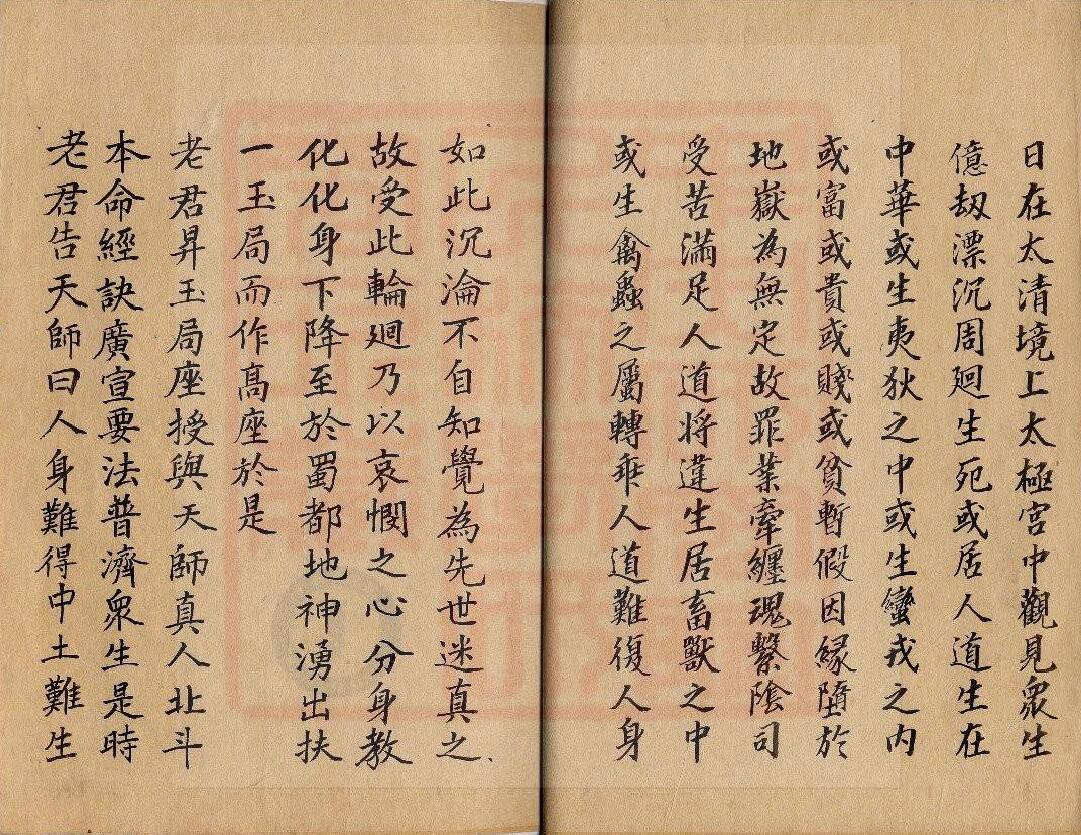 日在太清境上太極宮中觀見衆生
億劫漂沉周廻生死或居人道生在
中華或生夷狄之中或生蠻戎之内
或富或貴或賤或貧暫假因縁墮於
地嶽為無定故罪業牽纏魂繫陰司
受苦滿足人道將違生居畜獸之中
或生禽蟲之屬轉乖人道難復人身
如此沉淪不自知覺為先世迷真之
故受此輪廻乃以哀憫之心分身教
化化身下降至於蜀都地神湧出扶
一玉局而作高座於是
老君昇玉局座授與天師真人北斗
本命經訣廣宣要法普濟衆生是時
老君告天師曰人身難得中土難生